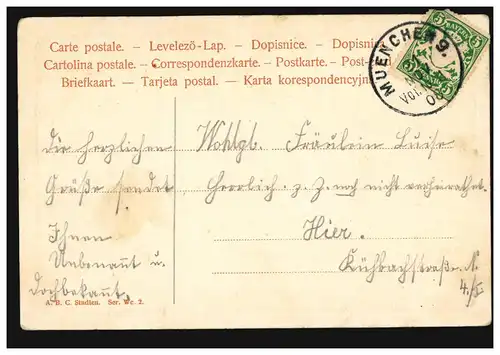 Carte postale. – Levelezö-Lap. – Dopisnice. – Dopisni
Cartolina postale. – Correspondenzkarte. – Postkarte. – Post-
Briefkaart. – Tarjeta postal. – Karta korespondencyjn
MUENCHEN 9.
BAYERN
5 5
PFENNIG
die herzlichen
Grüße sendet
Ihnen
Unbenannt u.
dochbekannt.
Wohlgb. Fräulein Luise
Herrlich z. Z. noch nicht verheirathet.
Hier.
Kühbachstraße N.
4./I.
A. B. C. Studien. Ser. We. 2.